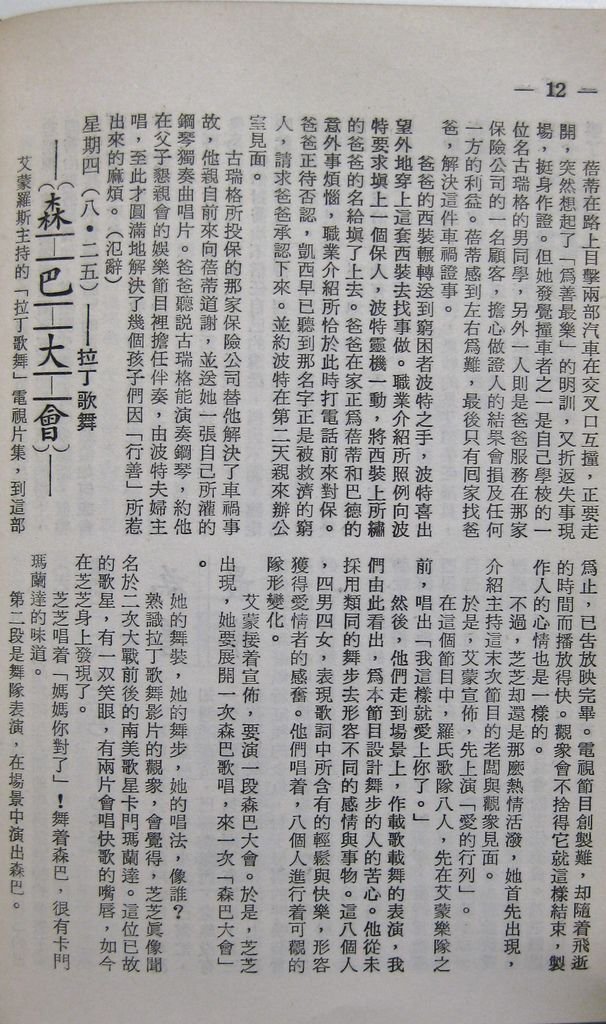 — 12 —
蓓蒂在路上目擊兩部汽車在交叉口互撞,正要走
開,突然想起了「爲善最樂」的明訓,又折返失事現
場,挺身作證。但她發覺撞車者之一是自己學校的一
位名古瑞格的男同學,另外一人則是爸爸服務在那家
保險公司的一名顧客,擔心做證人的結果會損及任何
一方的利益。蓓蒂感到左右爲難,最後只有囘家找爸
爸,解決這件車禍證事。
爸爸的西裝輾轉送到窮困者波特之手,波特喜出
望外地穿上這套西裝去找事做。職業介紹所照例向波
特要求塡上一個保人,波特靈機一動,將西裝上所繡
的爸爸的名給塡了上去。爸爸在家正爲蓓蒂和巴德的
意外事煩惱,職業介紹所恰於此時打電話前來對保。
爸爸正待否認,凱西早已聽到那名字正是被救濟的窮
人,請求爸爸承認下來。並約波特在第二天親來辦公
室見面。
古瑞格所投保的那家保險公司替他解決了車禍事
故,他親自前來向蓓蒂道謝,並送她一張自己所灌的
鋼琴獨奏曲唱片。爸爸聽説古瑞格能演奏鋼琴,約他
在父子懇親會的娛樂節目裡擔任伴奏,由波特夫婦主
唱,至此才圓滿地解決了幾個孩子們因「行善」所惹
出來的麻煩。(氾辭)
星期四(八·二五)——拉丁歌舞
——(森巴大會)——
艾蒙羅斯主持的「拉丁歌舞」電視片集,到這部
爲止,已告放映完畢。電視節目創製難,却隨着飛逝
的時間而播放得快。觀衆會不捨得它就這樣結束,製
作人的心情也是一樣的。
不過,芝芝却還是那麽熱情活潑,她首先出現,
介紹主持這末次節目的老闆與觀衆見面。
於是,艾蒙宣佈,先上演「愛的行列」。
在這個節目中,羅氏歌隊八人,先在艾蒙樂隊之
前,唱出「我這樣就愛上你了。」
然後,他們走到場景上,作載歌載舞的表演,我
們由此看出,爲本節目設計舞步的人的苦心。他從未
採用類同的舞步去形容不同的感情與事物。這八個人
,四男四女,表現歌詞中所含有的輕鬆與快樂,形容
獲得愛情者的感奮。他們唱着,八個人進行着可觀的
隊形變化。
艾蒙接着宣佈,要演一段森巴大會。於是,芝芝
出現,她要展開一次森巴歌唱,來一次「森巴大會」
。
她的舞裝,她的舞步,她的唱法,像誰?
熟識拉丁歌舞影片的觀衆,會覺得,芝芝眞像聞
名於二次大戰前後的南美歌星卡門瑪蘭達。這位已故
的歌星,有一双笑眼,有兩片會唱快歌的嘴唇,如今
在芝芝身上發現了。
芝芝唱着「媽媽你對了」!舞着森巴,很有卡門
瑪蘭達的味道。
第二段是舞隊表演,在場景中演出森巴。